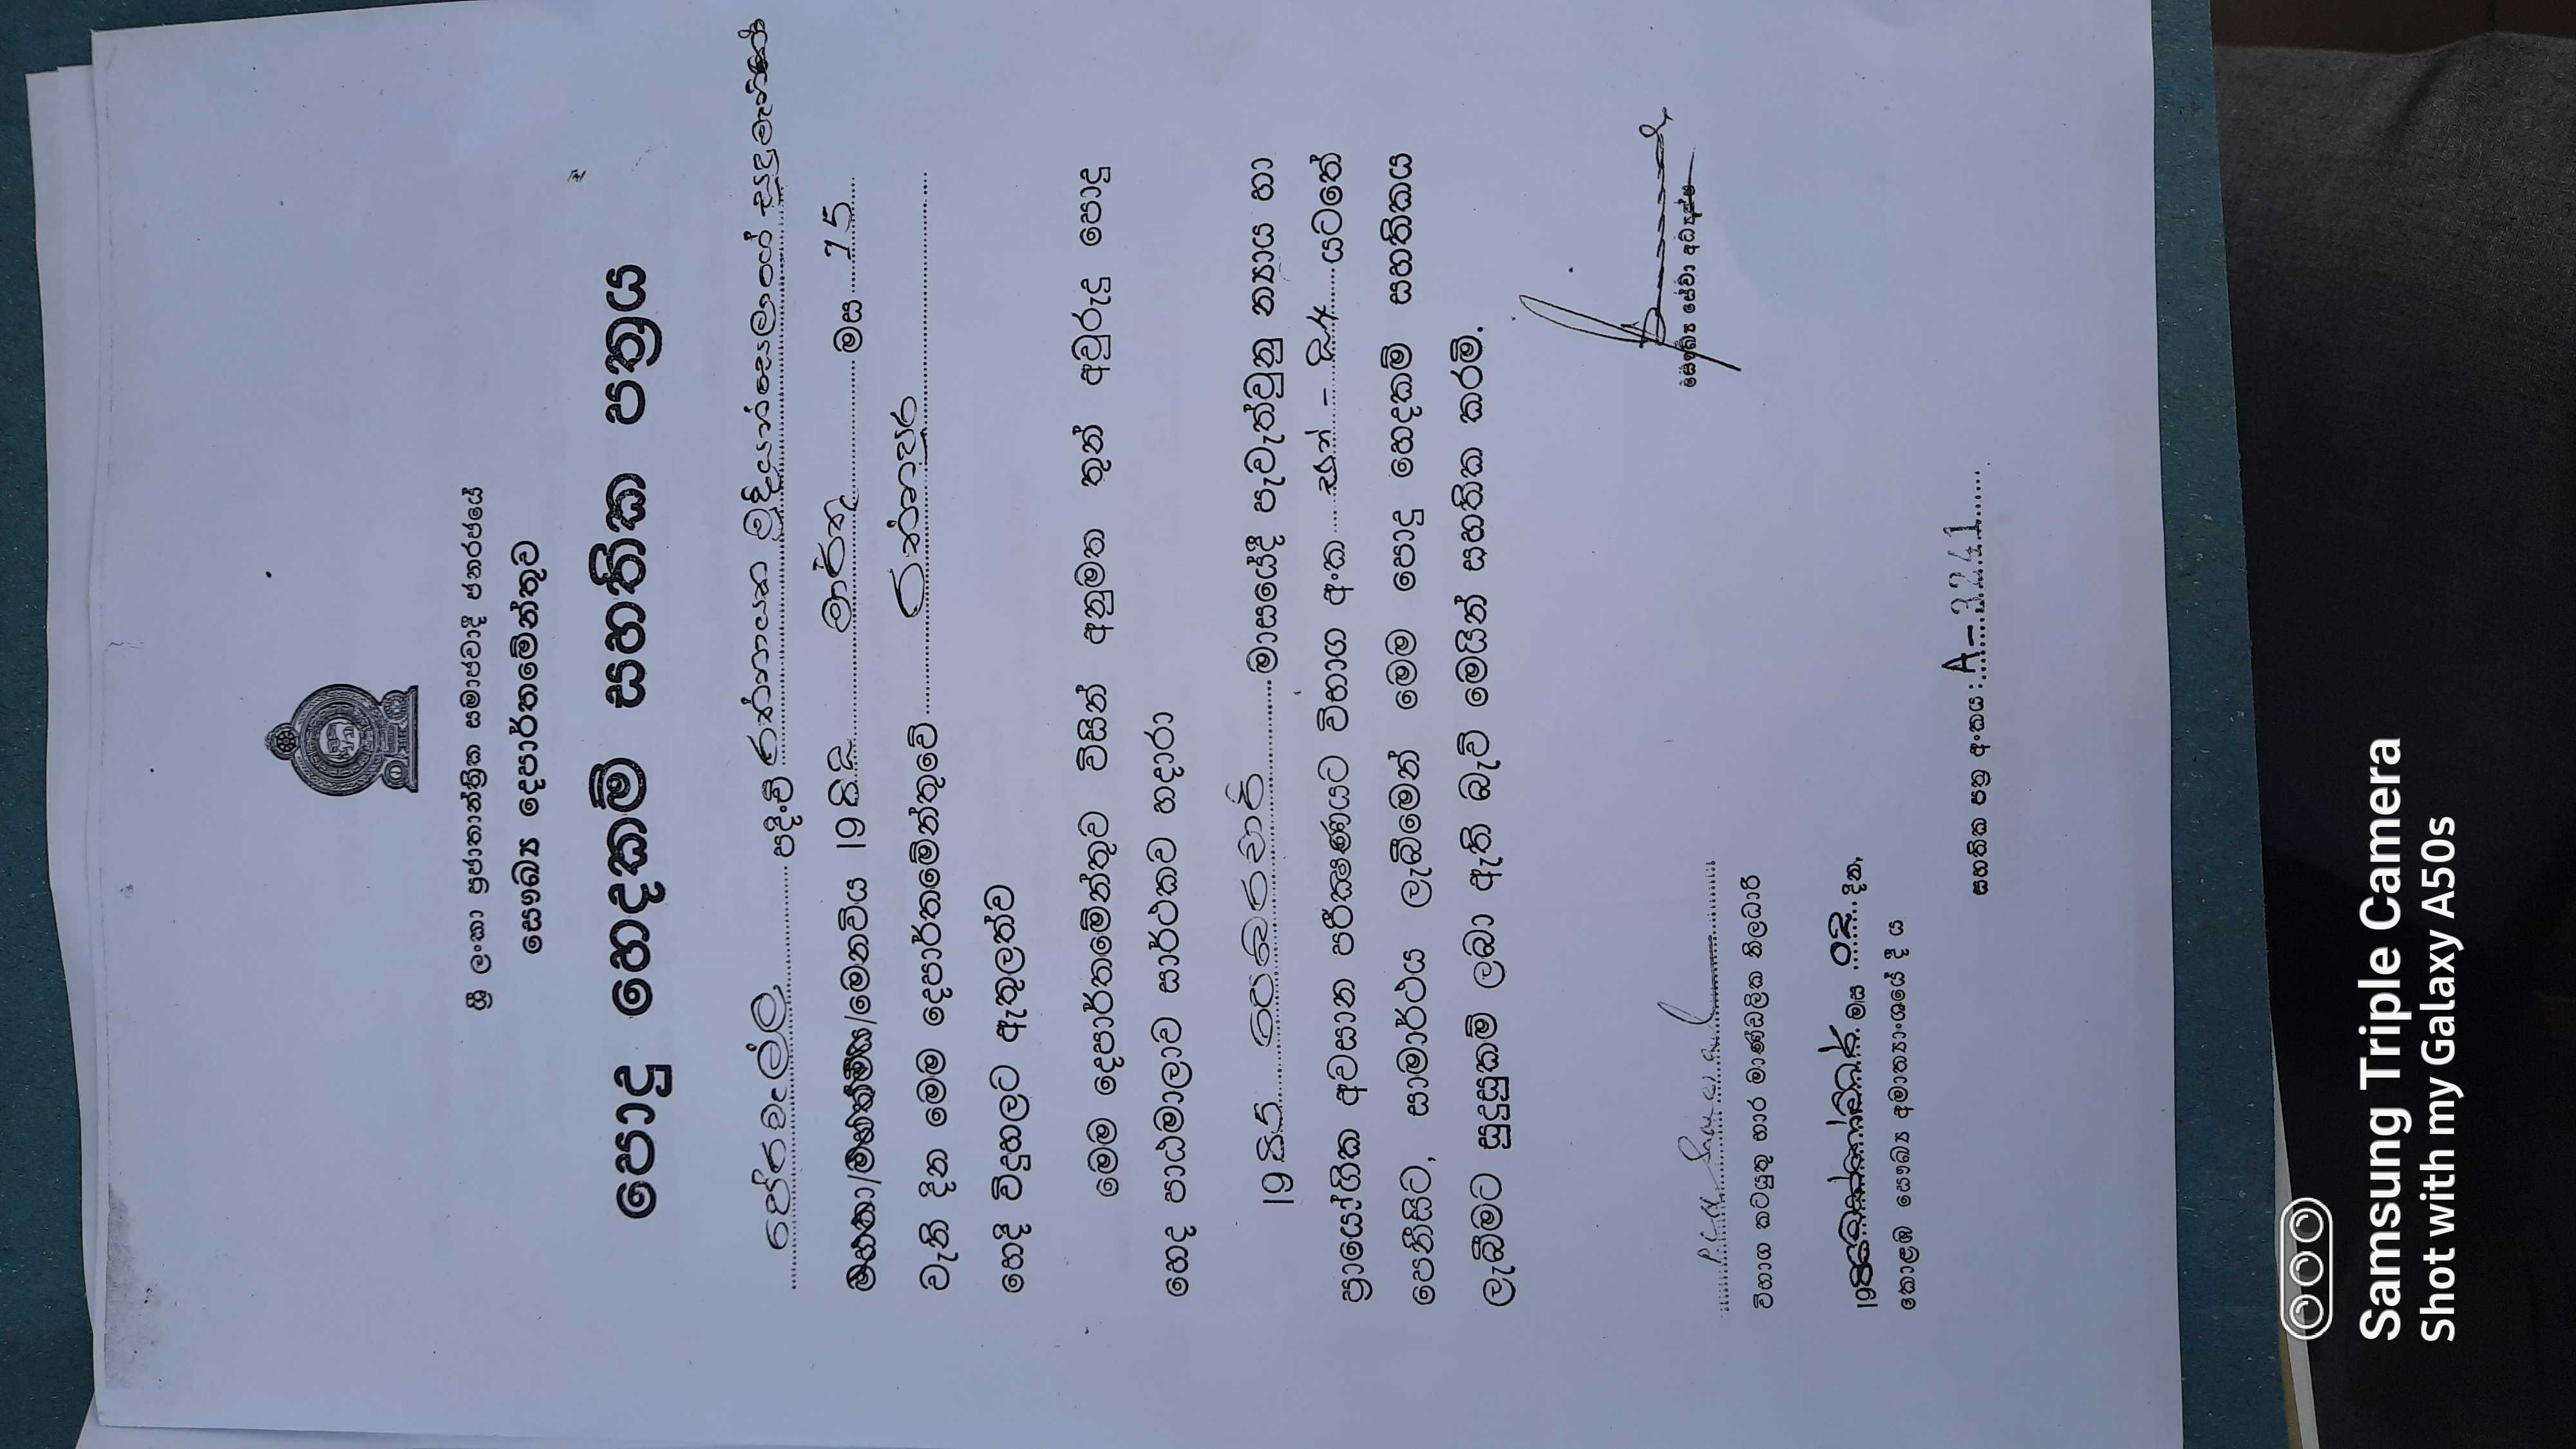 ශ්‍රී ලංකා ප්‍රජාතාන්ත්‍රික සමාජවාදී ජනරජයේ
සෞඛ්‍ය දෙපාර්තමේන්තුව
පොදු හෙදකම් සහතික පත්‍රය
පදිංචි
මහතා/මහත්මිය/මෙනවිය 198 මාර්තු මස 15
වැනි දින මෙම දෙපාර්තමේන්තුවේ රත්නපුර
හෙදි විදුහලට ඇතුලත්ව
මෙම දෙපාර්තමේන්තුව විසින් අනුමත තුන් අවුරුදු පොදු
හෙද පාඨමාලාව සාර්ථකව හදාරා
1985 පෙබරවාරි මාසයේදී පැවැත්වුනු න්‍යාය හා
ප්‍රායෝගික අවසාන පරීක්ෂණයට විභාග අංක යටතේ
පෙනීසිට, සාමාර්ථය ලැබීමෙන් මෙම පොදු හෙදකම් සහතිකය
ලැබීමට සුදුසුකම් ලබා ඇති බැව් මෙයින් සහතික කරමි.
සෞඛ්‍ය සේවා අධ්‍යක්ෂ
විභාග කටයුතු භාර මාණ්ඩලික නිලධාරී
මස 02 දින,
කොළඹ සෞඛ්‍ය අමාත්‍යාංශයේ දී ය
සහතික පත්‍ර අංකය : A-3241
Samsung Triple Camera
Shot with my Galaxy A50s